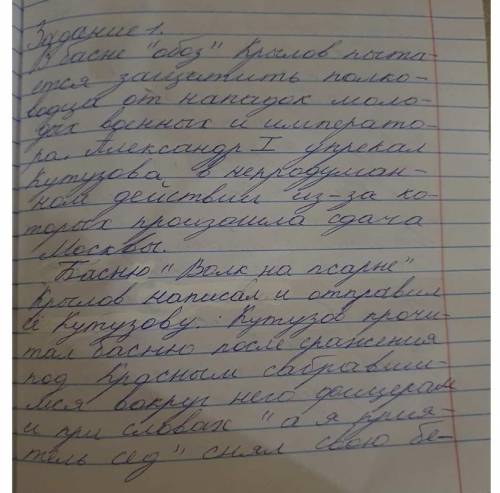 Задание 1.
В басне "обоз" Крылов пыта-
ется защитить полко-
водца от нападок моло-
дых военных и императо-
ра. Александр I упрекал
Кутузова в непродуман-
ном действии из-за ко-
торых произошла сдача
Москвы.
Басню "Волк на псарне"
Крылов написал и отправил
к Кутузову. Кутузов прочи-
тал басню после сражения
под Красным сабравши-
мся вокруг него офицерам
и при словах "а я прия-
тель сед" снял свою бе-